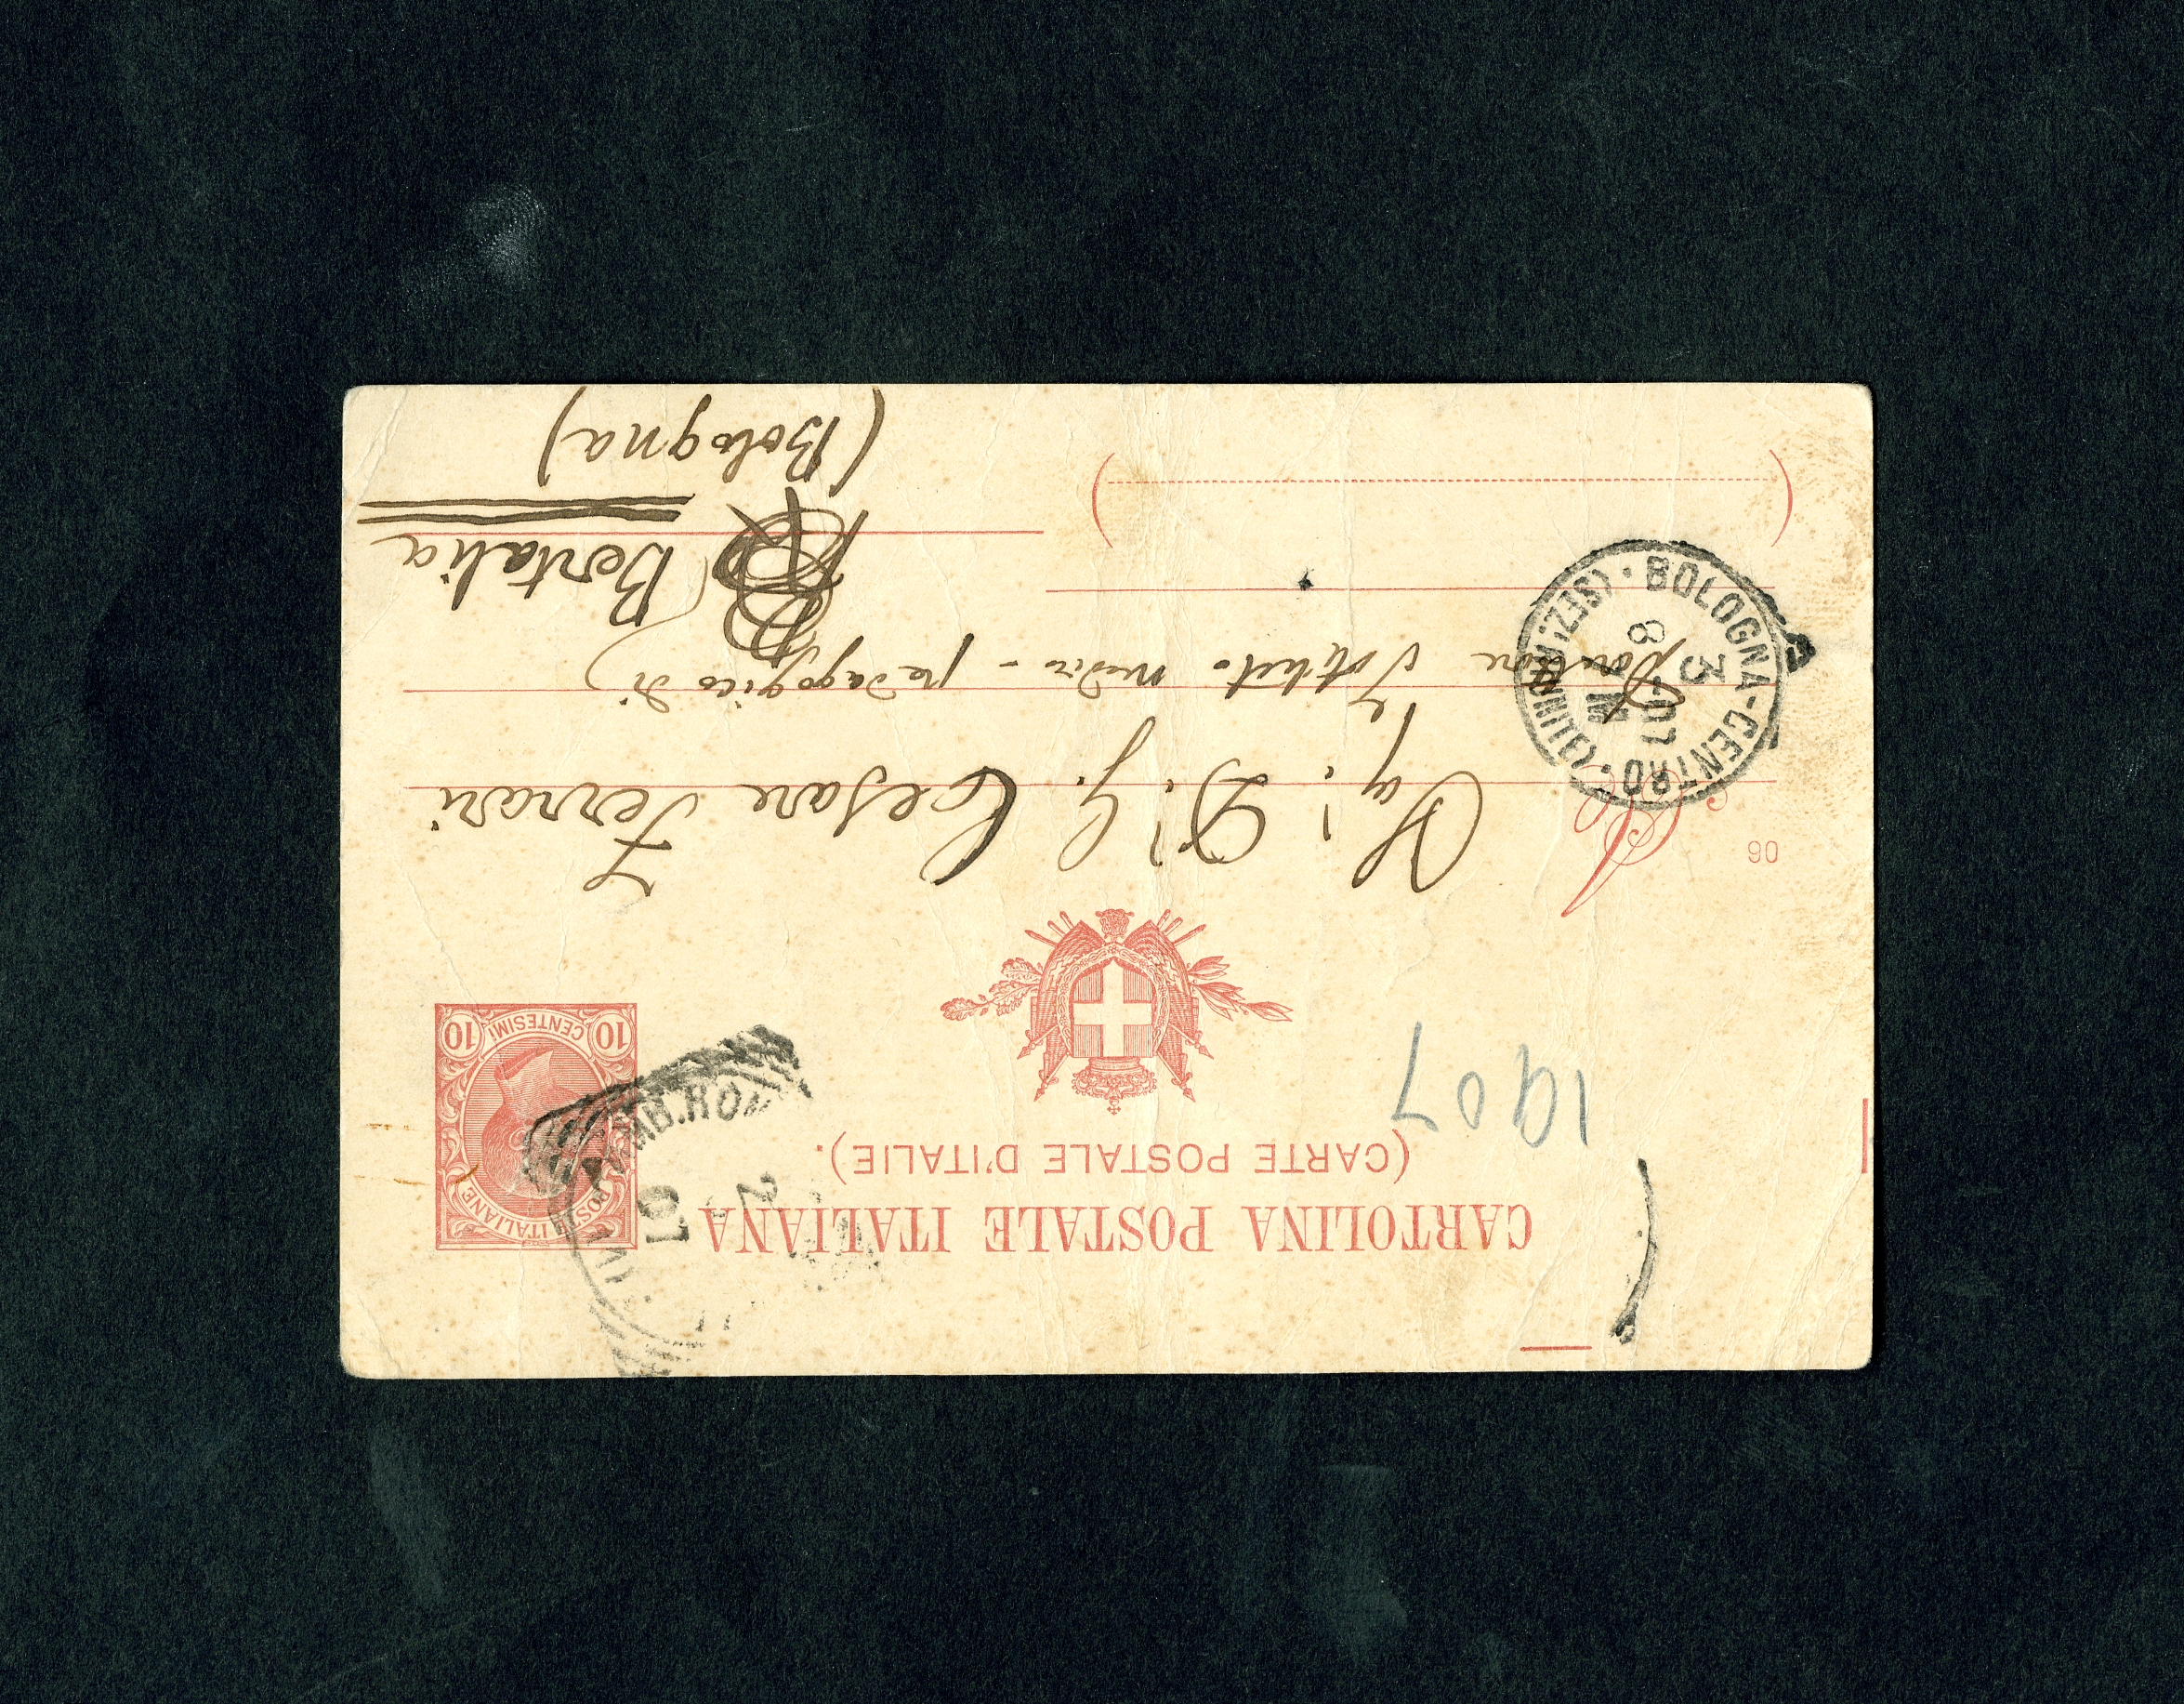 CARTOLINA POSTALE ITALIANA
(CARTE POSTALE D'ITALIE).
1907
POSTE ITALIANE
10 CENTESIMI 10
AMB.ROMA
07
2
06
A
Sig. Dr. G. Cesare Ferrari
Direttore Istituto medico-pedagogico di
Bertalia
(Bologna)
BOLOGNA-CENTRO • (SEZ. RIUNITE) •
3
8
07
M